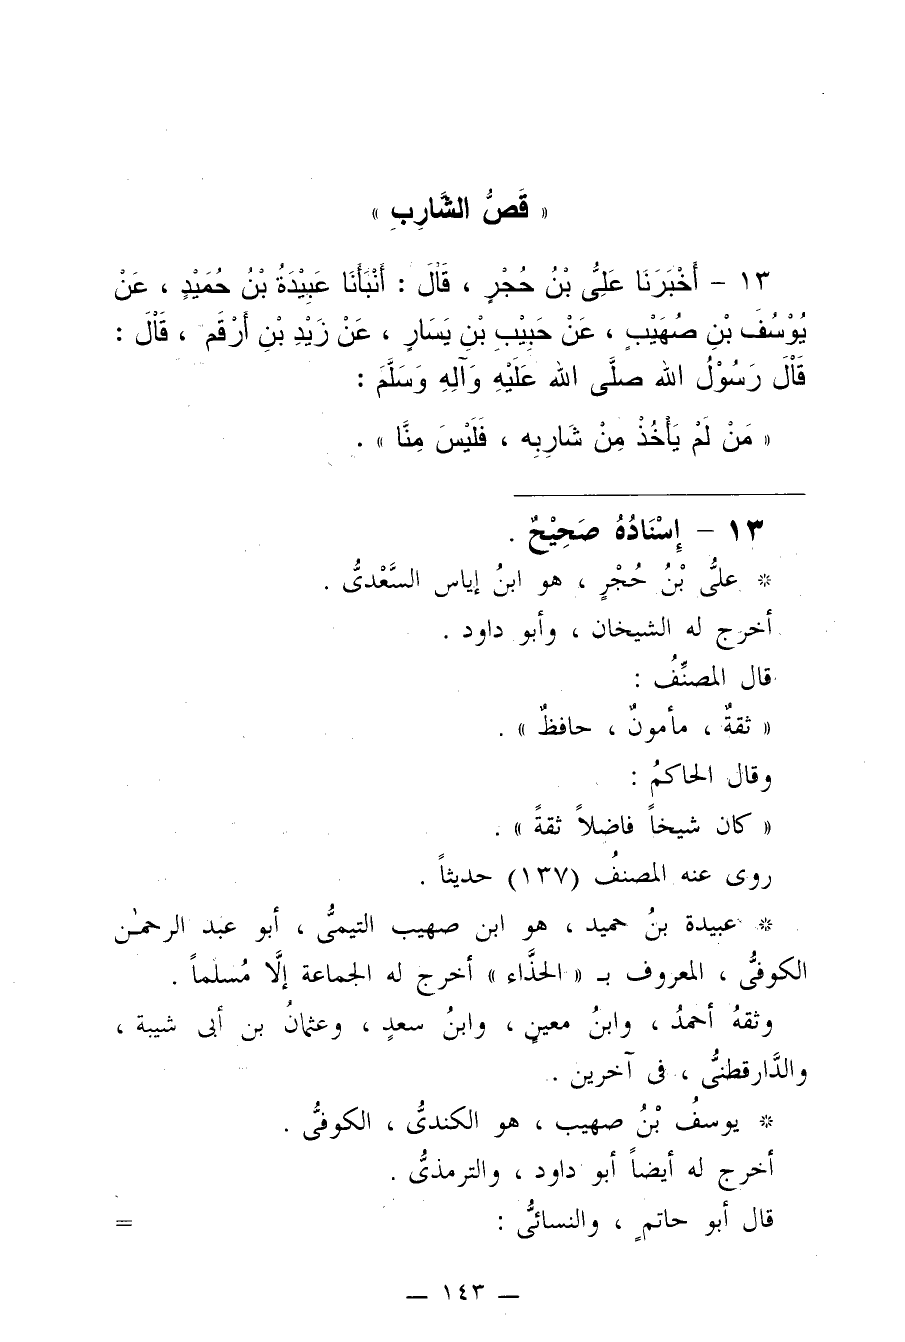 « قَصُّ الشَّارِبِ »
١٣ – أَخْبَرَنَا عَلِىُّ بْنُ حُجْرٍ ، قَالَ : أَنْبَأَنَا عَبِيْدَةُ بْنُ حُمَيْدٍ ، عَنْ
يُوْسُفَ بْنِ صُهَيْبٍ ، عَنْ حَبِيْبِ بْنِ يَسَارٍ ، عَنْ زَيْدِ بْنِ أَرْقَم َ ، قَاْلَ :
قَاْلَ رَسُوْلُ الله صلَّى الله عَلَيْهِ وَآلِهِ وَسَلَّمَ :
« مَنْ لَمْ يَأْخُذْ مِنْ شَارِبِه ، فَلَيْسَ مِنَّا » .
١٣ – إِسْنَادُهُ صَحِيْحٌ .
* علىُّ بْنُ حُجْرٍ ، هو ابنُ إياس السَّعْدىُّ .
أخرج له الشيخان ، وأبو داود .
قال المصنِّفُ :
« ثقةٌ ، مأمونٌ ، حافظٌ » .
وقال الحاكمُ :
« كان شيخاً فاضلاً ثقةً » .
روى عنه المصنفُ (١٣٧) حديثاً .
* عبيدة بنُ حميد ، هو ابن صهيب التيمىُّ ، أبو عبد الرحمٰن
الكوفىُّ ، المعروف بـ « الحذَّاء » أخرج له الجماعة إلَّا مُسلماً .
وثقهُ أحمدُ ، وابنُ معينٍ ، وابنُ سعدٍ ، وعثمانُ بن أبى شيبة ،
والدَّارقطنىُّ ، فى آخرين .
* يوسفُ بْنُ صهيب ، هو الكندىُّ ، الكوفىُّ .
أخرج له أيضاً أبو داود ، والترمذىُّ .
قال أبو حاتمٍ ، والنسائىُّ : =
— ١٤٣ —